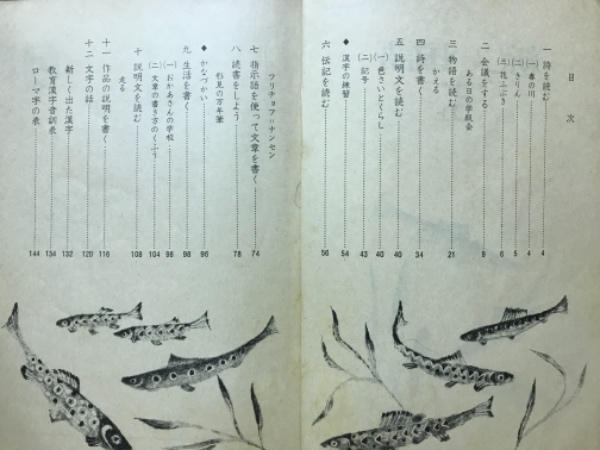 目次
一 詩を読む……4
(一) 春の川……4
(二) きりん……5
(三) 花ふぶき……6
二 会議をする……9
ある日の学級会
三 物語を読む……21
かえる
四 詩を書く……34
五 説明文を読む……40
(一) 色さいとくらし……40
(二) 記号……43
◆ 漢字の練習……54
六 伝記を読む……56
フリチョフ=ナンセン
七 指示語を使って文章を書く……74
八 読書をしよう……78
形見の万年筆
◆ かなづかい……96
九 生活を書く……98
(一) おかあさんの学校……98
(二) 文章の書き方のくふう……104
十 説明文を読む……108
走る
十一 作品の説明を書く……116
十二 文字の話……120
新しく出た漢字……132
教育漢字音訓表……134
ローマ字の表……144